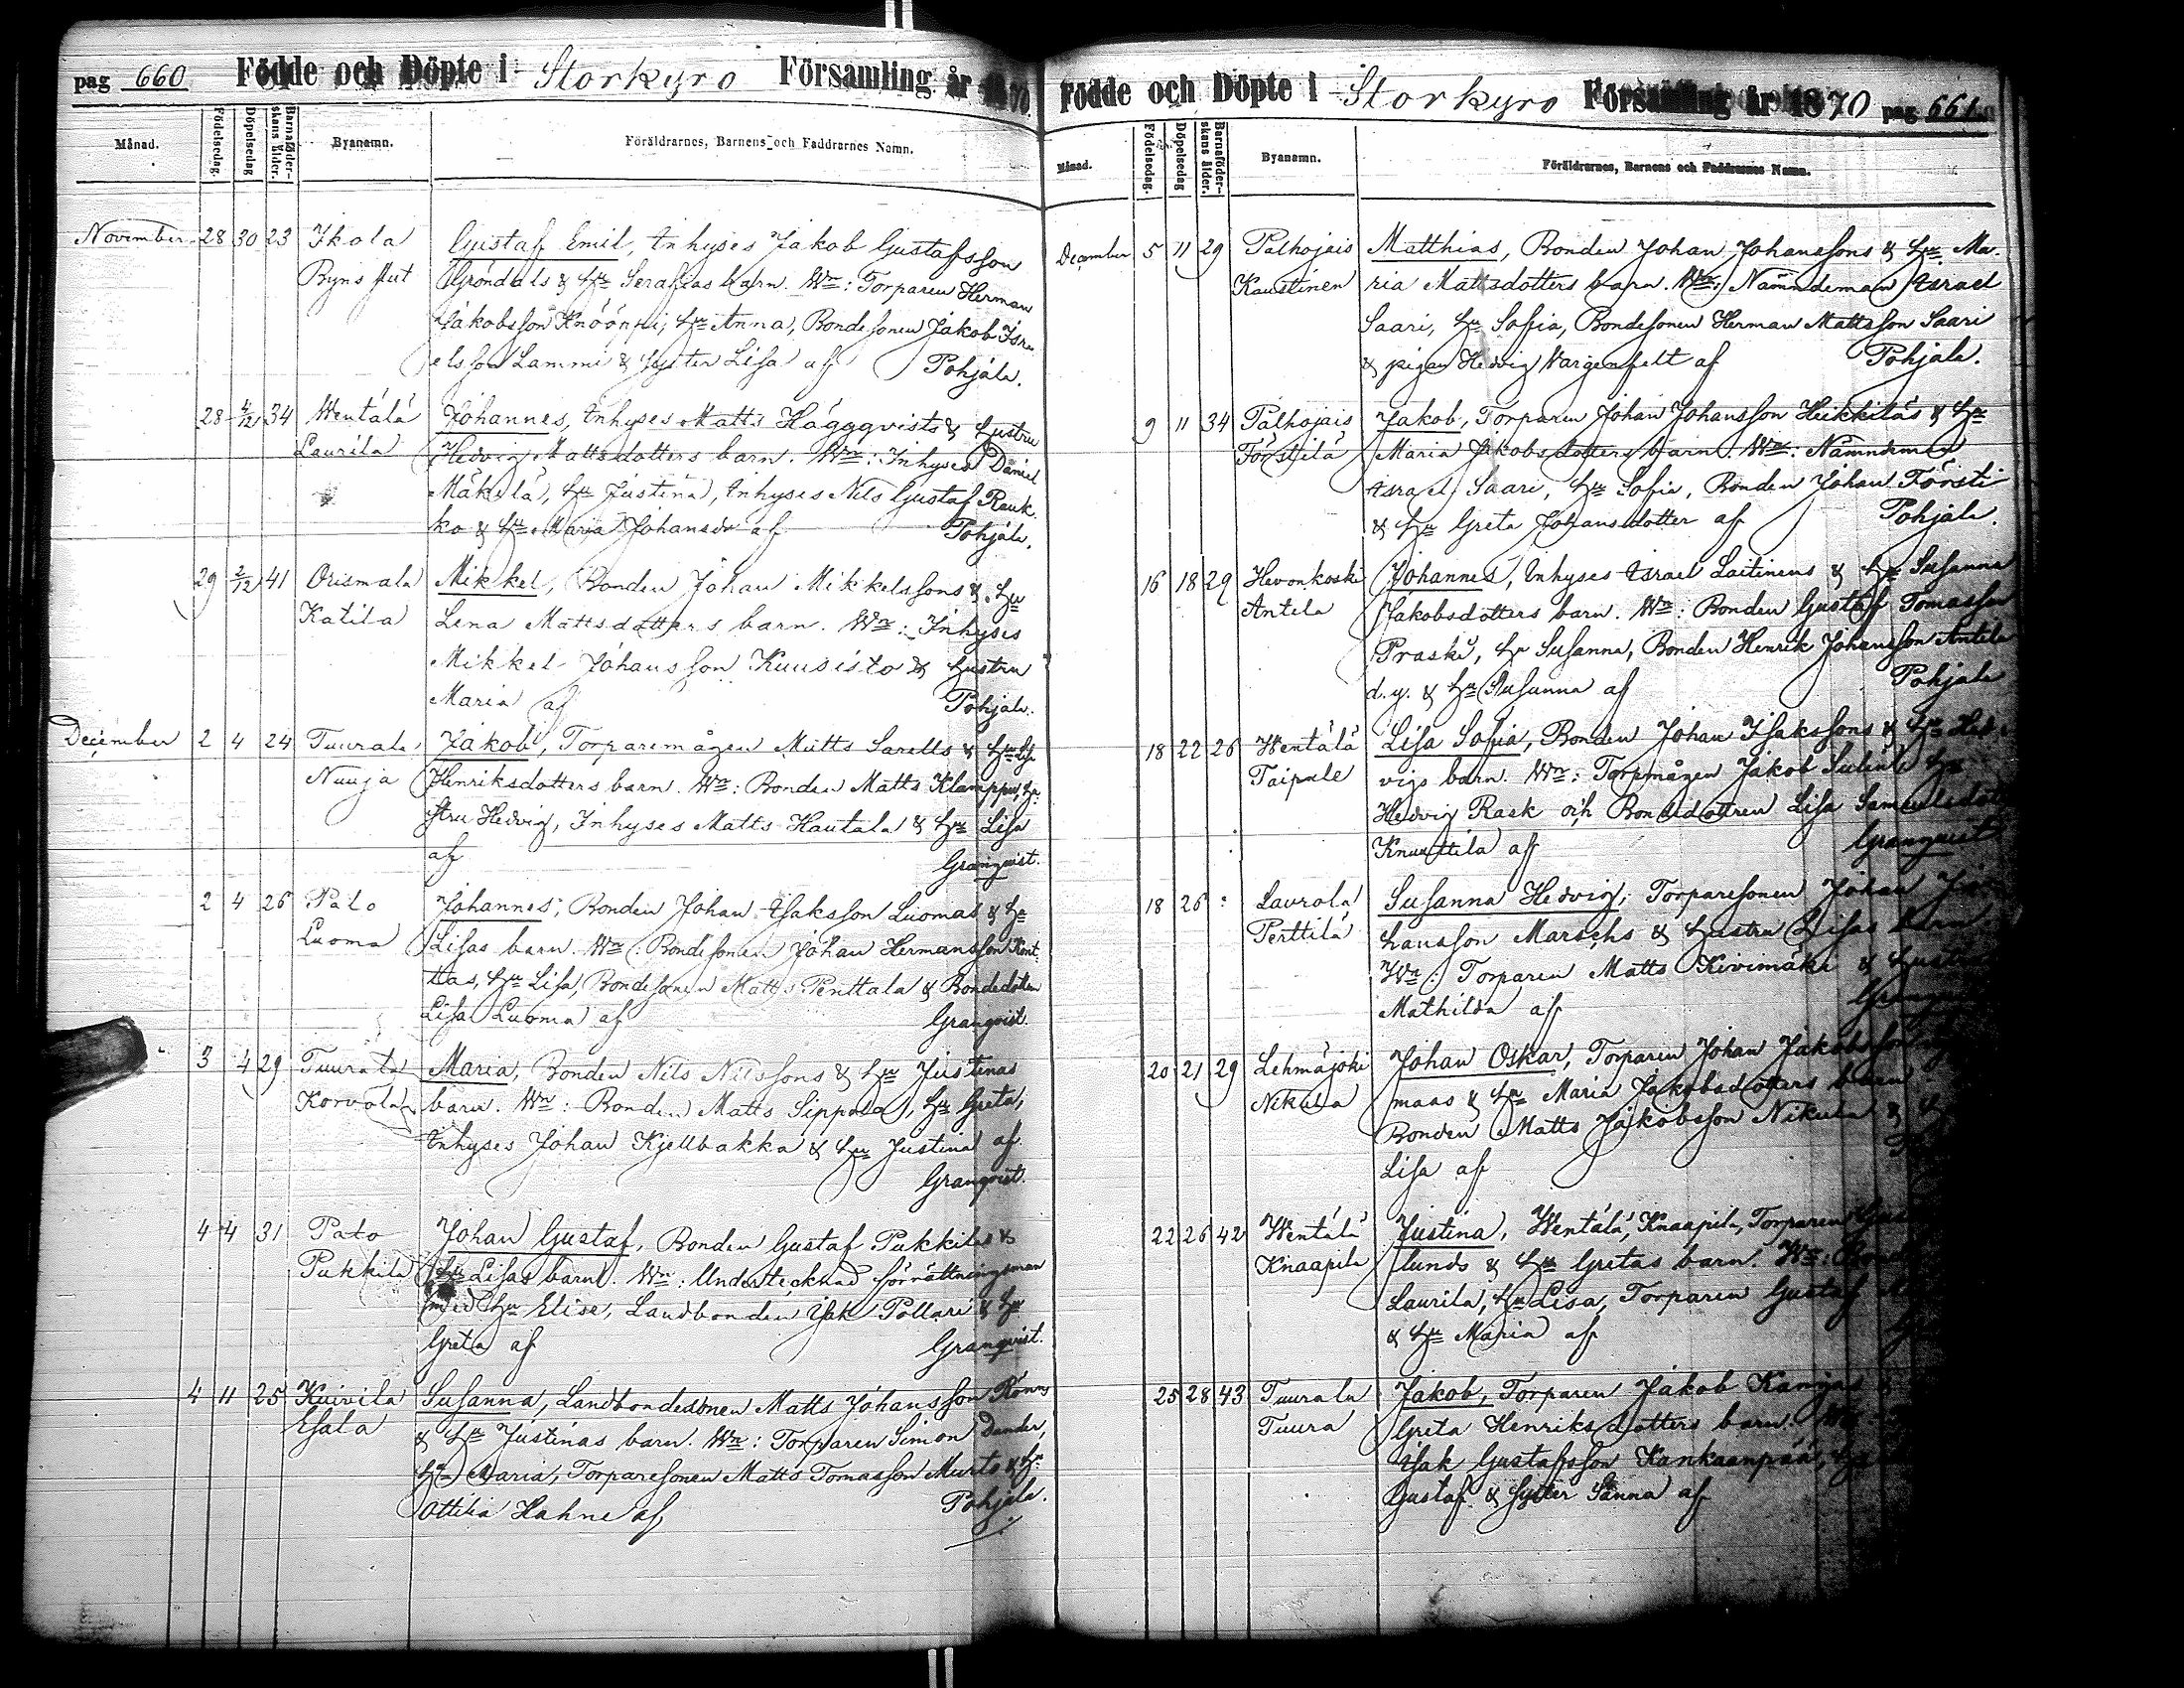 pag 660 Födde och Döpte i Storkyro Församling år 1870.
Månad. Födelsedag. Döpelsedag Barnaföderskans ålder. Byanamn. Föräldrarnes, Barnens och Faddrarnes Namn.
November 28 30 23 Ikola Gustaf Emil, Inhyses Jakob Gustafsson
Byns hut Gröndals & Hu Serafias barn. Wn: Torparen Herman
Jakobsson Knöönpi, Hu Anna, Bondesonen Jakob Isra
elsson Lammi & syster Lisa af Pohjala.
28 4/12 34 Wentälä Johannes, Inhyses Matts Häggqvists & Hustru
Laurila Hedvig Mattsdotters barn. Wn: Inhyses Daniel
Mäkelä, Hu Justina, Inhyses Nils Gustaf Rauk
ko & Hu Maria Johansdr af Pohjala.
29 2/12 41 Orismala Mikkel, Bonden Johan Mikkelssons & Hu
Katila Lena Mattsdotters barn. Wn: Inhyses
Mikkel Johansson Kuusisto & Hustru
Maria af Pohjala.
December 2 4 24 Tuurala Jakob, Torparemågen Matts Sarells & Hu
Nuuja Henriksdotters barn. Wn: Bonden Matts Klamppu, Hu
stru Hedvig, Inhyses Matts Hautala & Hu Lisa
af Granqvist.
2 4 26 Palo Johannes, Bonden Johan Isaksson Luomas & Hu
Luoma Lisas barn. Wn: Bondesonen Johan Hermansson Kent
tas, Hu Lisa, Bondesonen Matts Penttala & Bondedotten
Lisa Luoma af Granqvist.
3 4 29 Tuurala Maria, Bonden Nils Nilssons & Hu Justinas
Korvola barn. Wn: Bonden Matts Sippola, Hu Greta,
Inhyses Johan Kjellbakka & Hu Justina af
Granqvist.
4 4 31 Palo Johan Gustaf, Bonden Gustaf Pukkilas &
Pukkila Hu Lisas barn. Wn: Undertecknad förrättningsman
med Hu Elise, Landbonden Isak Pollari & Hu
Greta af Granqvist.
4 11 25 Kuivila Susanna, Landbondesonen Matts Johansson
Esala & Hu Justinas barn. Wn: Torparen Simon Dander,
Hu Maria, Torparesonen Matts Tomasson Murto & Hu
Ottilia Hahne af Pohjala.
Födde och Döpte i Storkyro Församling år 1870 pag 661
Månad. Födelsedag. Döpelsedag Barnaföderskans ålder. Byanamn. Föräldrarnes, Barnens och Faddrarnes Namn.
December 5 11 29 Palhojais Matthias, Bonden Johan Johanssons & Hu Ma
Kaustinen ria Mattsdotters barn. Wn: Nämndeman Israel
Saari, Hu Sofia, Bondesonen Herman Mattsson Saari
& pigan Hedvig Vargenfelt af Pohjala.
9 11 34 Palhojais Jakob, Torparen Johan Johansson Heikkiläs & Hu
Förstilä Maria Jakobsdotters barn. Wn: Nämndeman
Israel Saari, Hu Sofia, Bonden Johan Försti
& Hu Greta Johansdotter af Pohjala.
16 18 29 Hevonkoski Johannes, Inhyses Israel Laitinens & Hu Susanna
Antila Jakobsdotters barn. Wn: Bonden Gustaf Tomasson
Praski, Hu Susanna, Bonden Henrik Johansson Antila
d.y. & Hu Susanna af Pohjala
18 22 26 Wentälä Lisa Sofia, Bonden Johan Isakssons & Hu Hed
Taipale vigs barn. Wn: Torpmågen Jakob Sulin, Hu
Hedvig Rask och Bondedottren Lisa
Knuuttila af Granqvist
18 26 : Laurola Susanna Hedvig, Torparesonen Johan
Perttilä hansson Marschs & Hustru Lisas barn
Wn: Torparen Matts Kivimäki & Hustru
Mathilda af
20 21 29 Lehmäjoki Johan Oskar, Torparen Johan Jakobsson
Nikula maas & Hu Maria Jakobsdotters barn
Bonden Matts Jakobsson Nikula &
Lisa af
22 26 42 Wentälä Justina, Wentälä, Knaapila, Torparen
Knaapila lunds & Hu Gretas barn. Wn:
Laurila, Hu Lisa, Torparen Gustaf
& Hu Maria af
25 28 43 Tuurala Jakob, Torparen Jakob
Tuura Greta Henriksdotters barn.
Isak Gustafsson Kankaanpää,
Gustaf & syster Sanna af